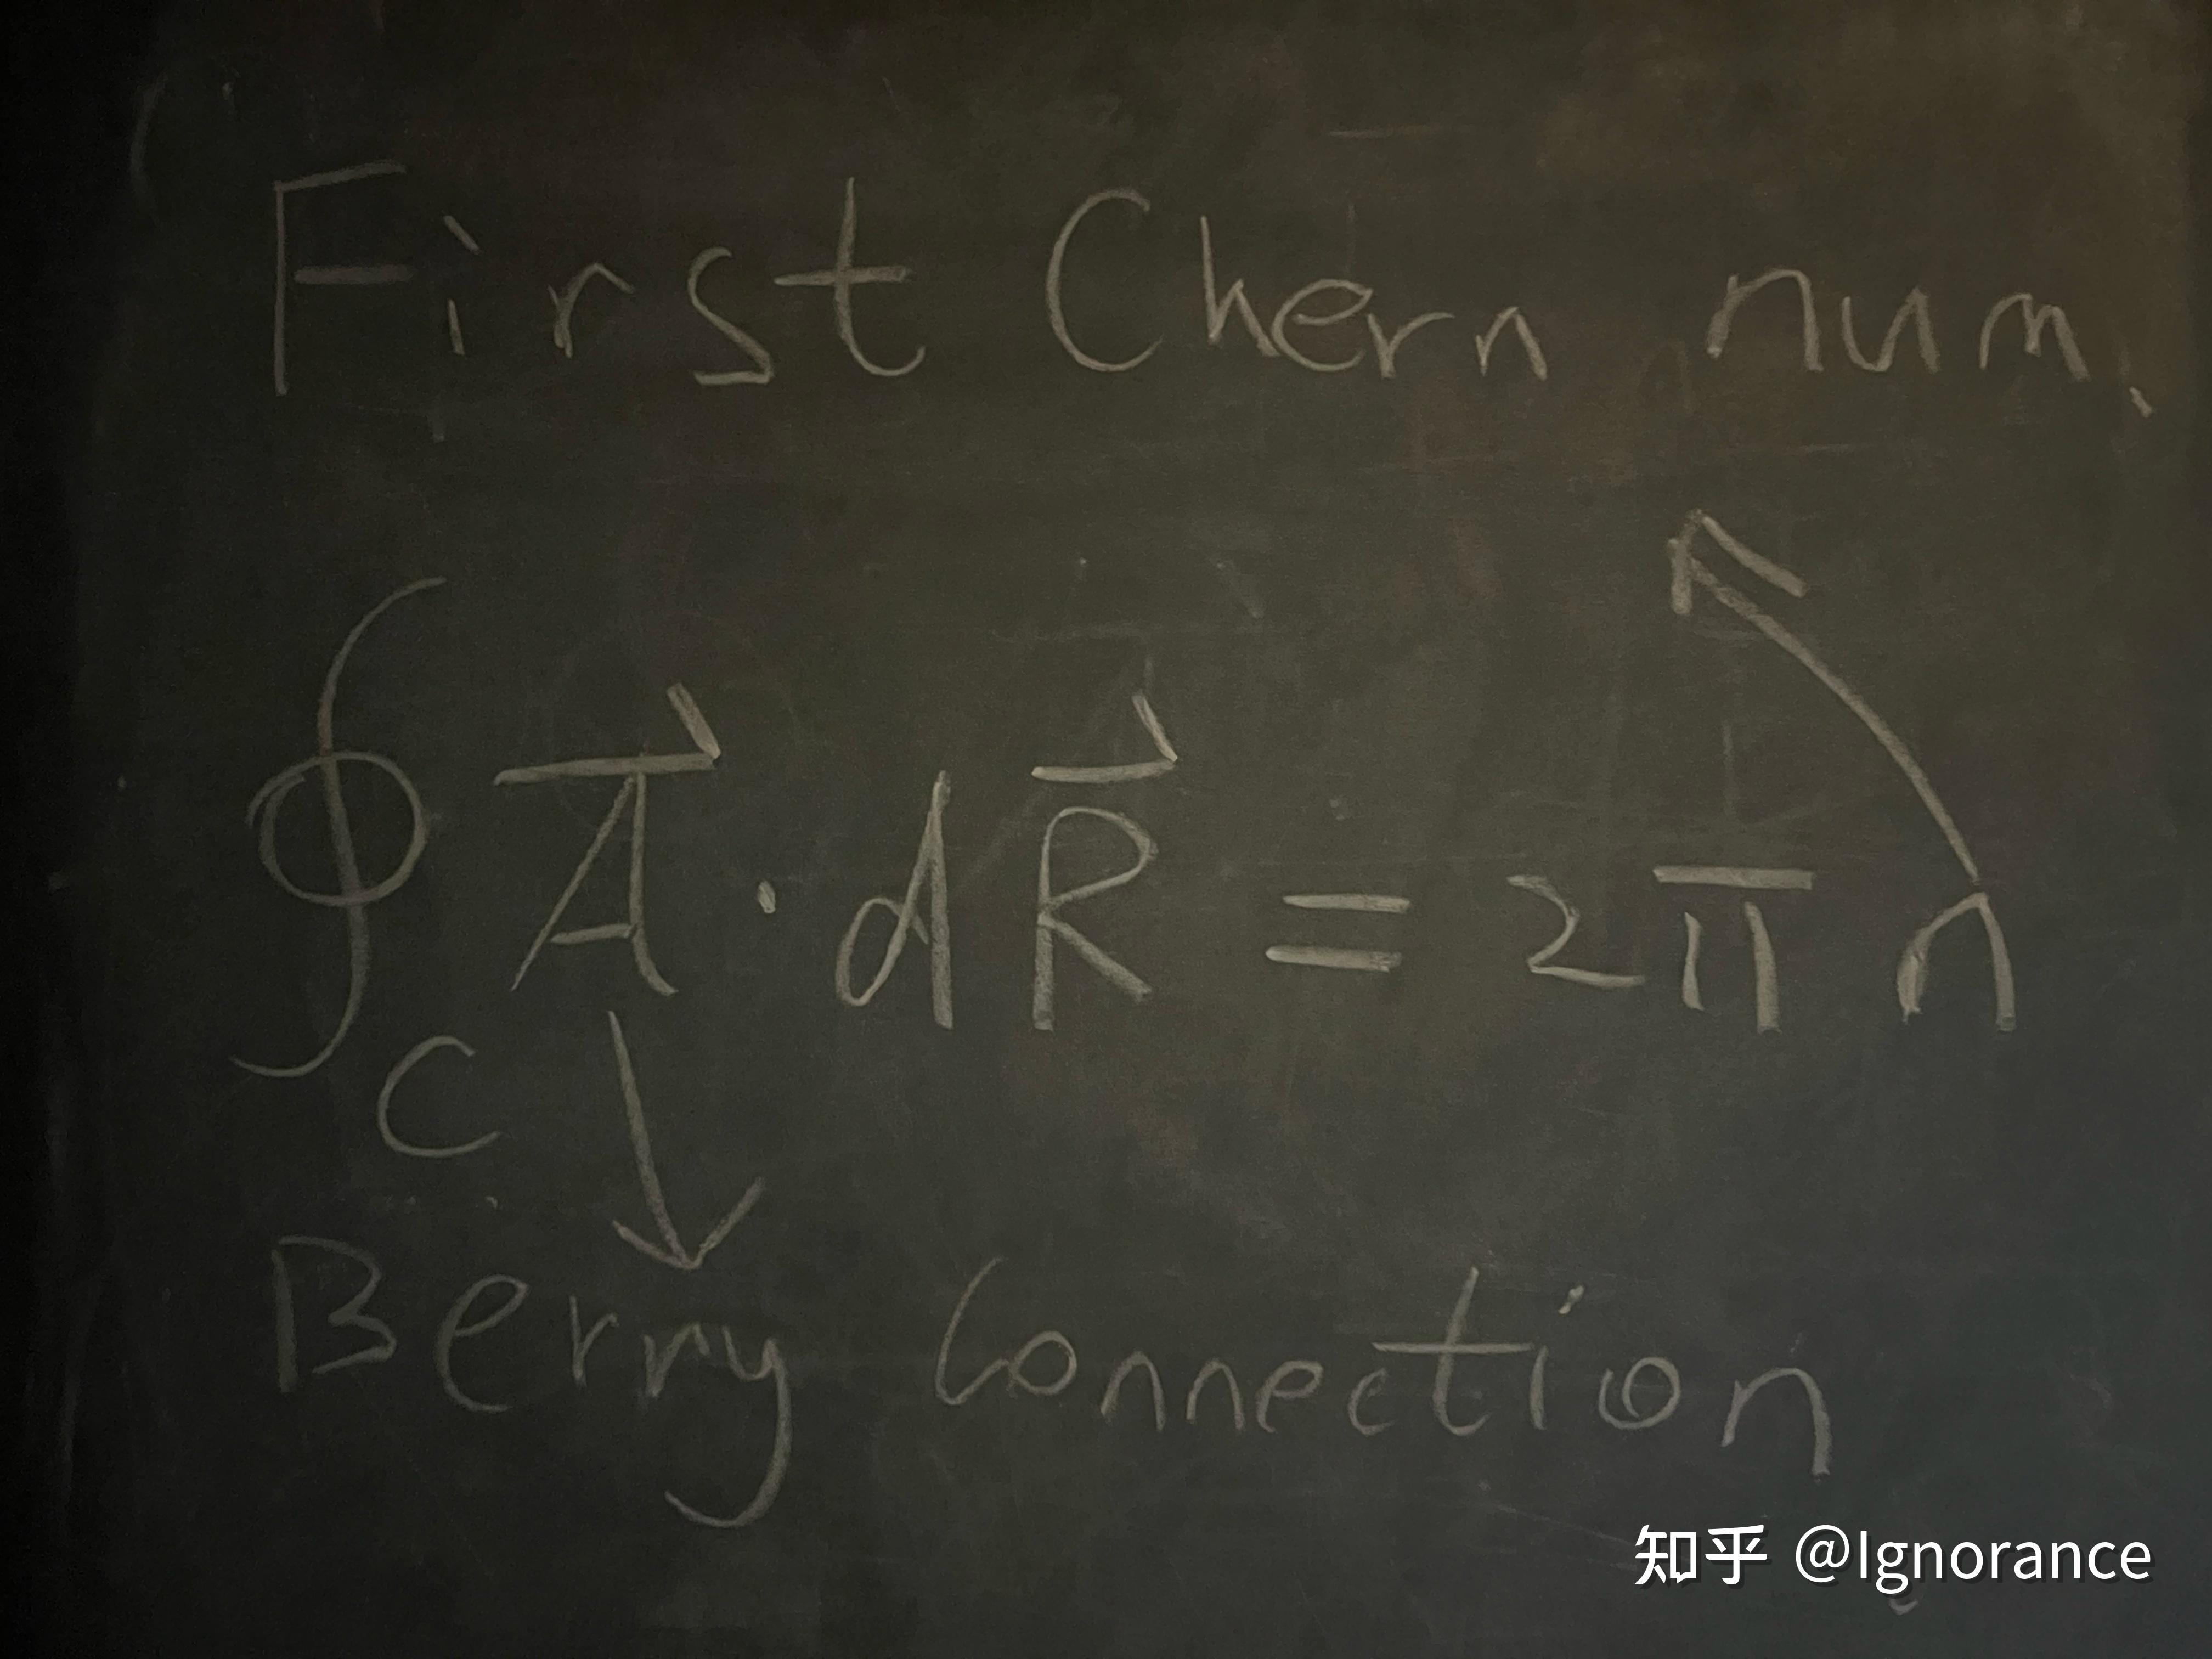 First Chern num.
∮ A⃗ · dR⃗ = 2π n
C
Berry Connection
知乎 @Ignorance